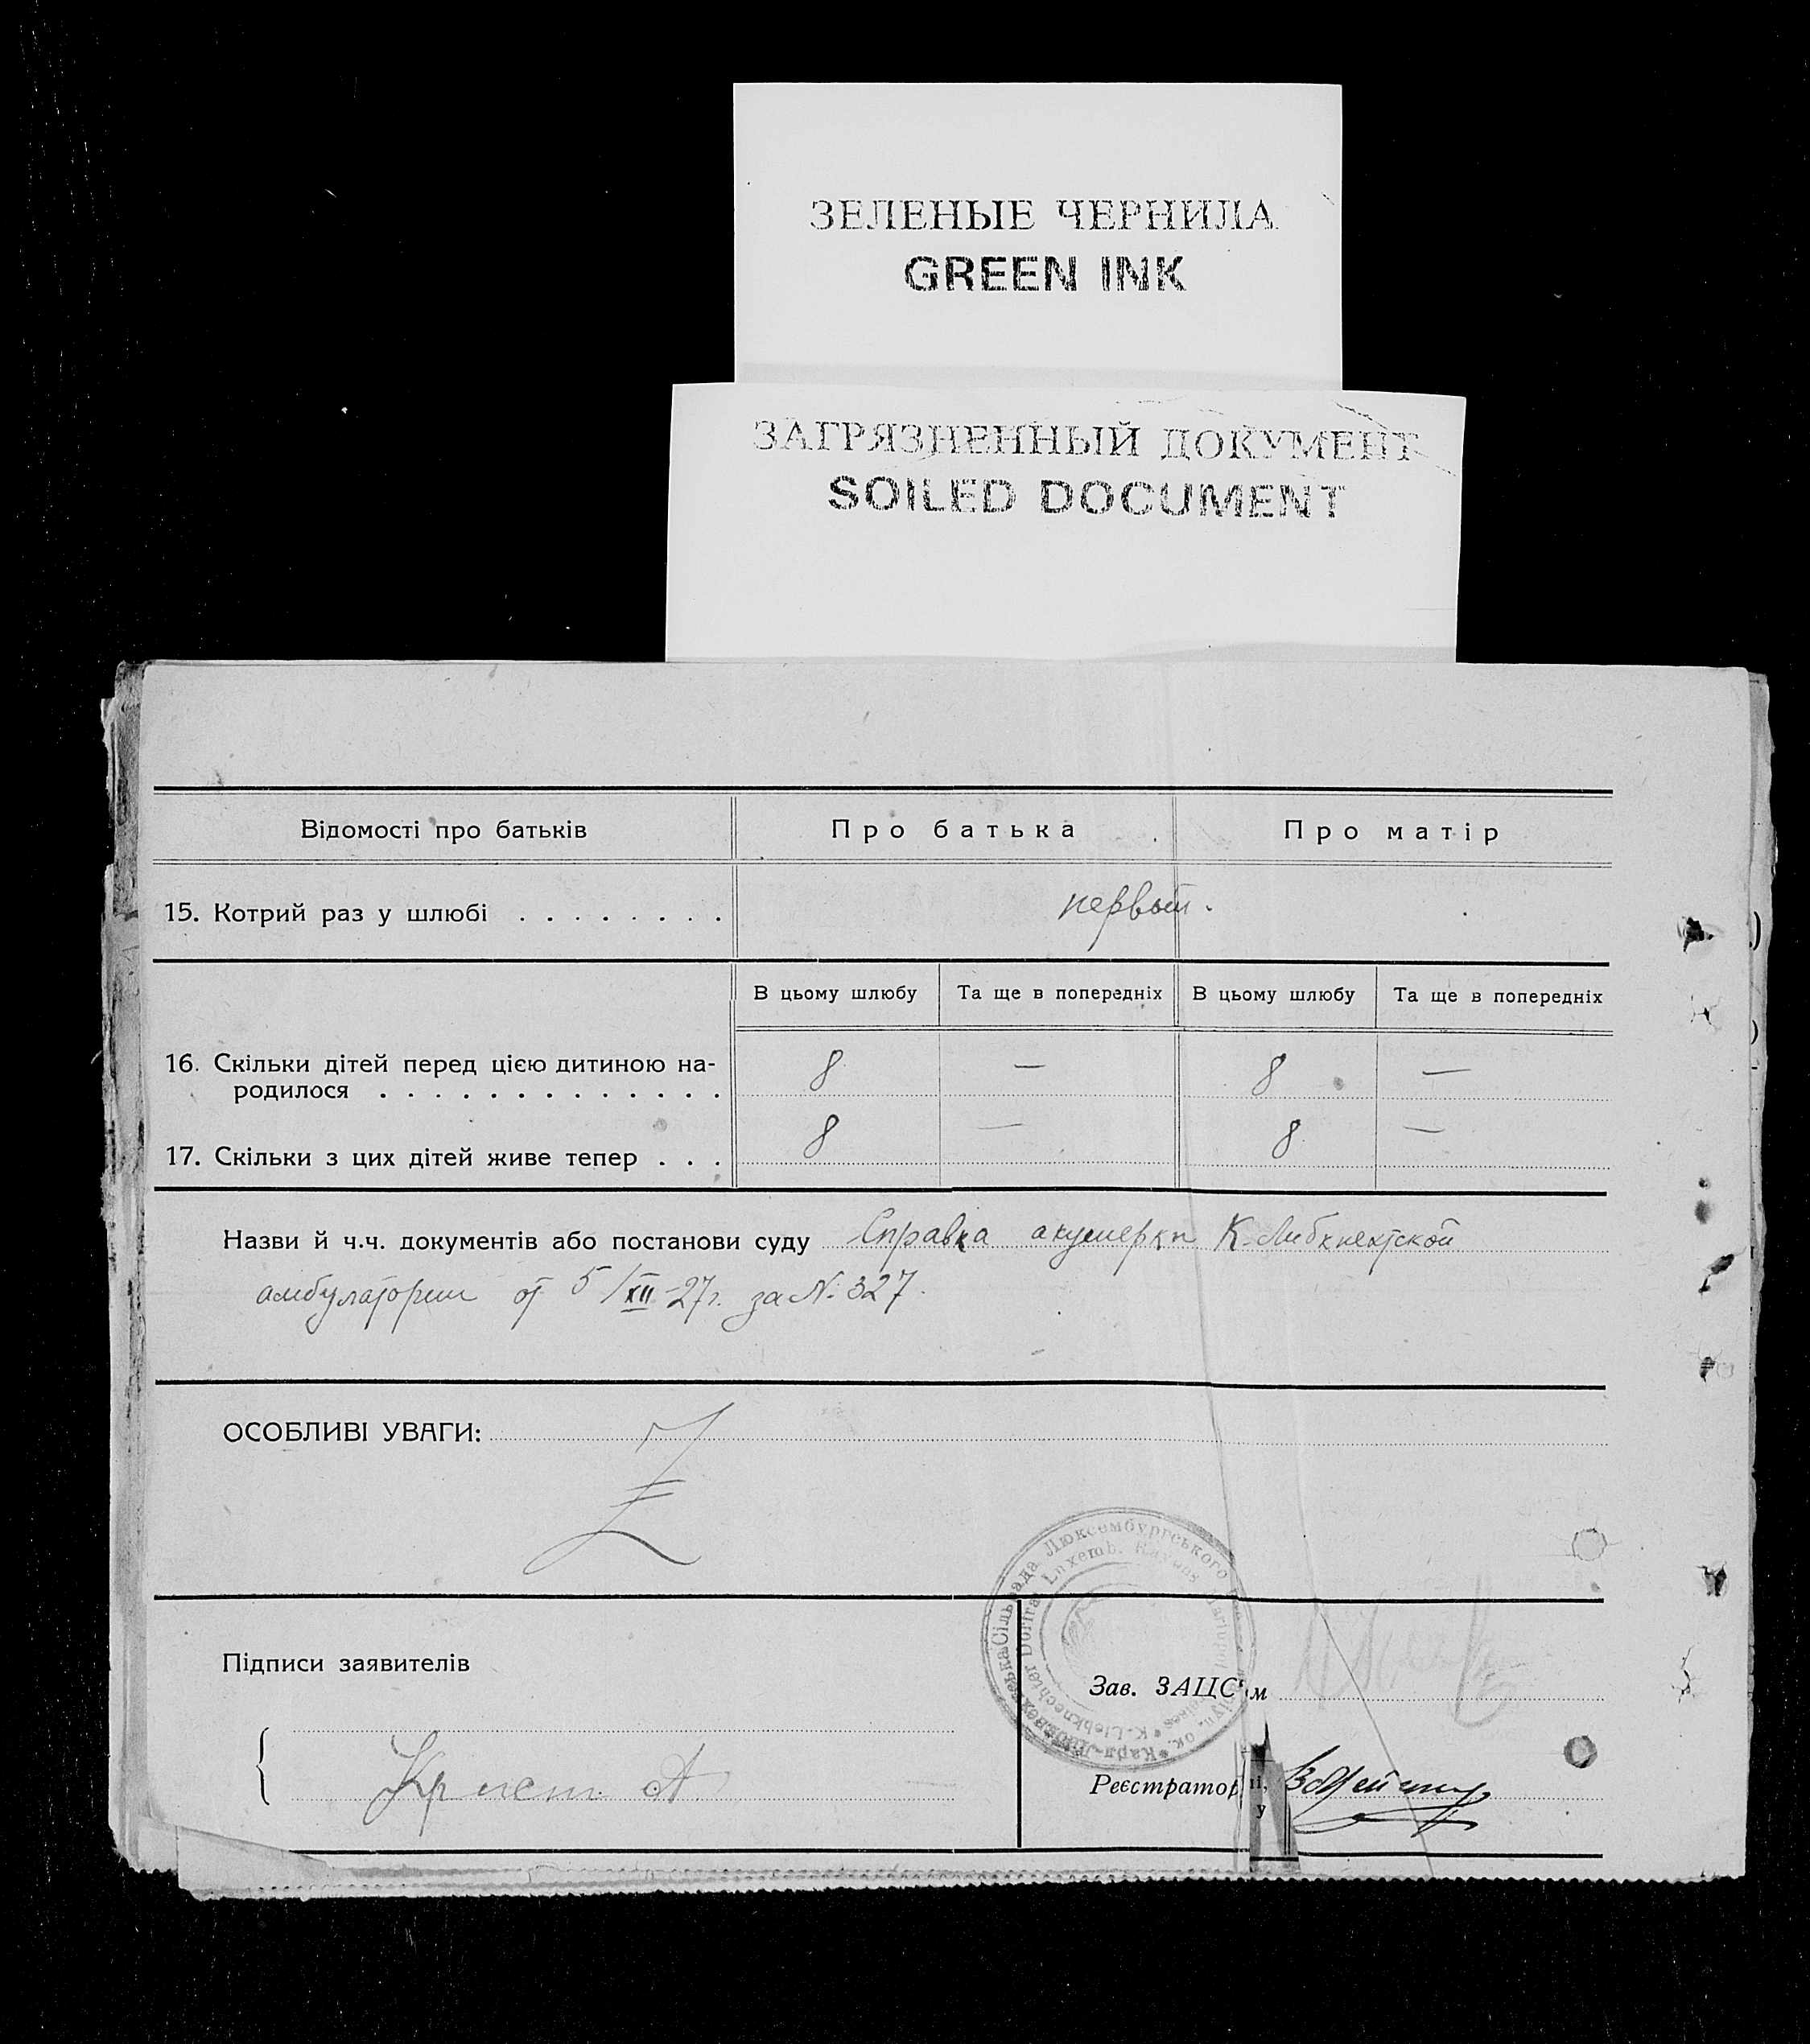 ЗЕЛЕНЫЕ ЧЕРНИЛА
GREEN INK
ЗАГРЯЗНЕННЫЙ ДОКУМЕНТ
SOILED DOCUMENT
Відомості про батьків Про батька Про матір
15. Котрий раз у шлюбі . . . . . . . . первый.
В цьому шлюбу Та ще в попередніх В цьому шлюбу Та ще в попередніх
16. Скільки дітей перед цією дитиною на-
родилося . . . . . . . . . . . . . 8 — 8 —
17. Скільки з цих дітей живе тепер . . . 8 — 8 —
Назви й ч.ч. документів або постанови суду Справка акушерки К-Либкнехтской
амбулатории от 5/XII-27г. за №327.
ОСОБЛИВІ УВАГИ:
Сільрада Люксембургського
Luxemb. Rayons
K.-Liebknechter Dorfrat
Підписи заявителів
Зав. ЗАЦС'ом
Реєстратор